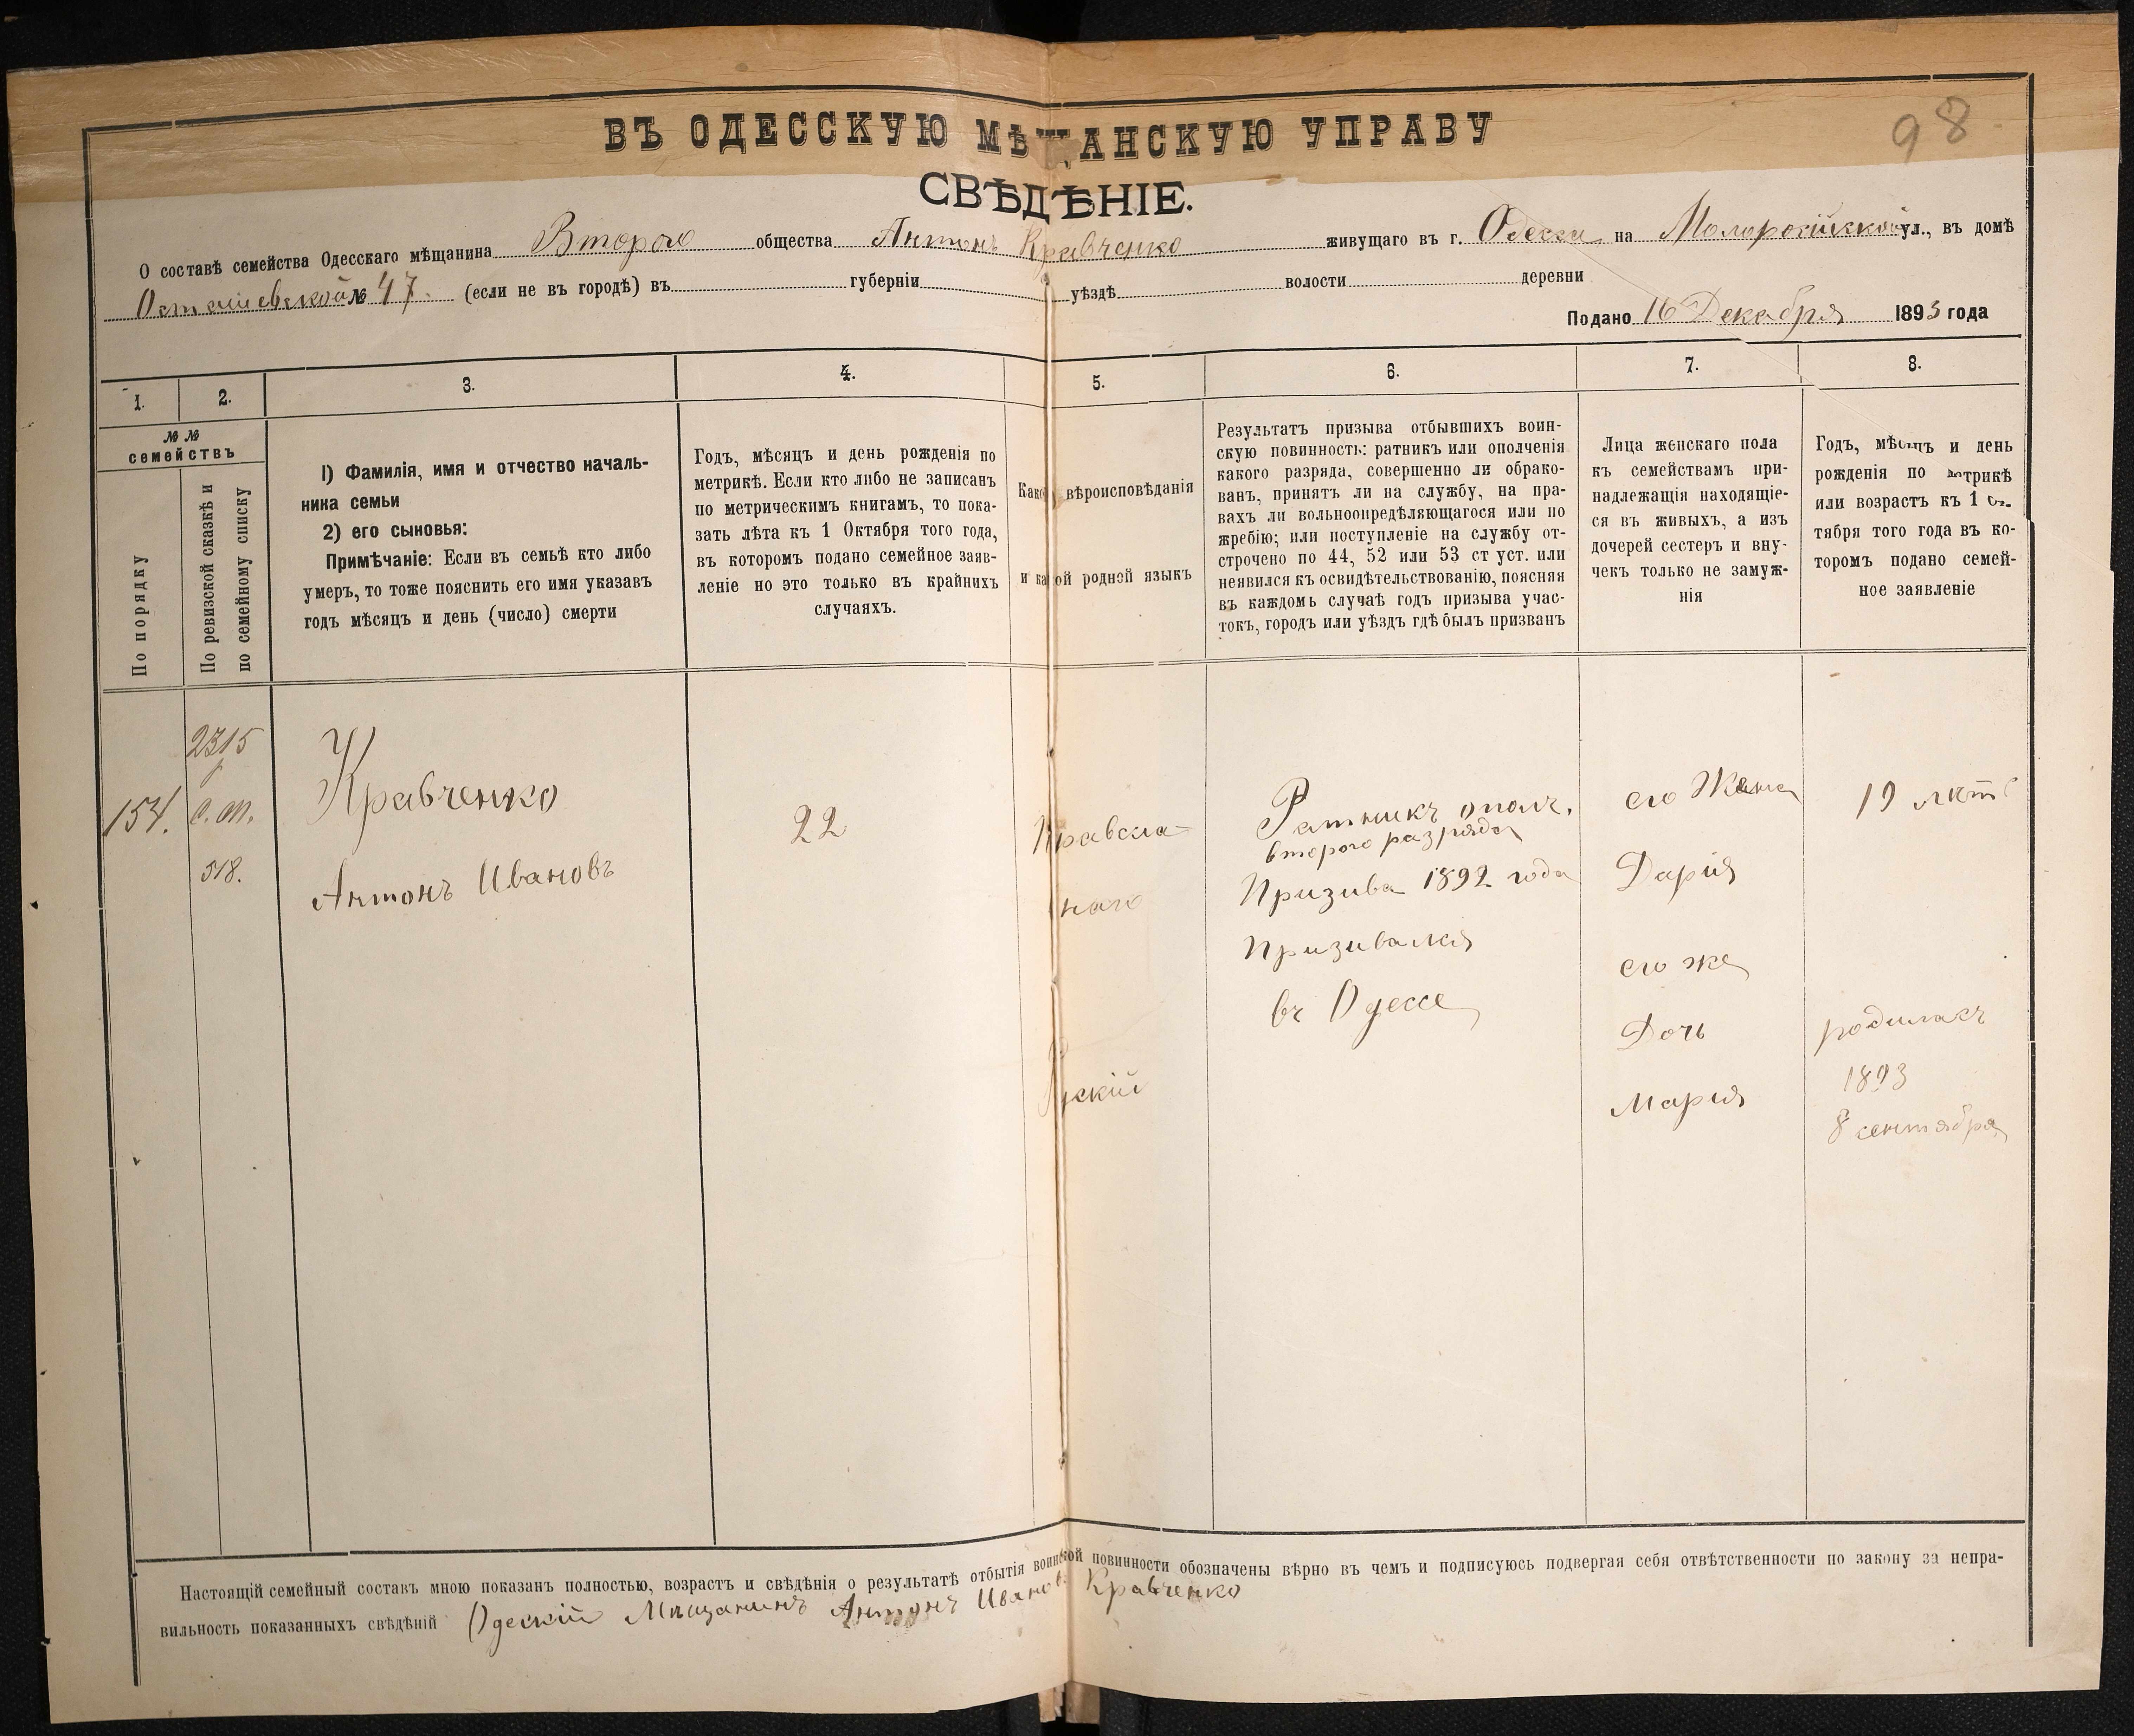 98
ВЪ ОДЕССКУЮ МѢЩАНСКУЮ УПРАВУ
СВѢДѢНІЕ.
О составѣ семейства Одесскаго мѣщанина Второго общества Антонъ Кравченко живущаго въ г. Одесса на Молоросійской ул., въ домѣ
Осташевской № 47. (если не въ городѣ) въ губерніи уѣздѣ волости деревни
Подано 16 Декабря 1893 года
1. 2. 3. 4. 5. 6. 7. 8.
№ №
семействъ
По порядку
По ревизской сказкѣ и
по семейному списку
1) Фамилія, имя и отчество началь-
ника семьи
2) его сыновья:
Примѣчаніе: Если въ семьѣ кто либо
умеръ, то тоже пояснить его имя указавъ
годъ мѣсяцъ и день (число) смерти
Годъ, мѣсяцъ и день рожденія по
метрикѣ. Если кто либо не записанъ
по метрическимъ книгамъ, то пока-
зать лѣта къ 1 Октября того года,
въ которомъ подано семейное заяв-
леніе но это только въ крайнихъ
случаяхъ.
Какого вѣроисповѣданія
и какой родной языкъ
Результатъ призыва отбывшихъ воин-
скую повинность: ратникъ или ополченія
какого разряда, совершенно ли обрако-
ванъ, принятъ ли на службу, на пра-
вахъ ли вольноопредѣляющагося или по
жребію; или поступленіе на службу от-
строчено по 44, 52 или 53 ст уст. или
неявился къ освидѣтельствованію, поясняя
въ каждомъ случаѣ годъ призыва учас-
токъ, городъ или уѣздъ гдѣ былъ призванъ
Лица женскаго пола
къ семействамъ при-
надлежащія находящіе-
ся въ живыхъ, а изъ
дочерей сестеръ и вну-
чекъ только не замуж-
нія
Годъ, мѣсяцъ и день
рожденія по метрикѣ
или возрастъ къ 1 Ок-
тября того года въ ко-
торомъ подано семей-
ное заявленіе
154.
2315
с. т.
518.
Кравченко
Антонъ Ивановъ
22
Правосла-
наго
Рускій
Ратникъ ополч.
второго разряда
Призива 1892 года
Призивался
въ Одессе
его Жена
Дарія
его же
Дочь
Марія
19 лѣтъ
родилась
1893
8 сентября
Настоящій семейный составъ мною показанъ полностью, возрастъ и свѣдѣнія о результатѣ отбытія воинской повинности обозначены вѣрно въ чемъ и подписуюсь подвергая себя отвѣтственности по закону за непра-
вильность показанныхъ свѣдѣній Одескій Мѣщанинъ Антонъ Иванов. Кравченко